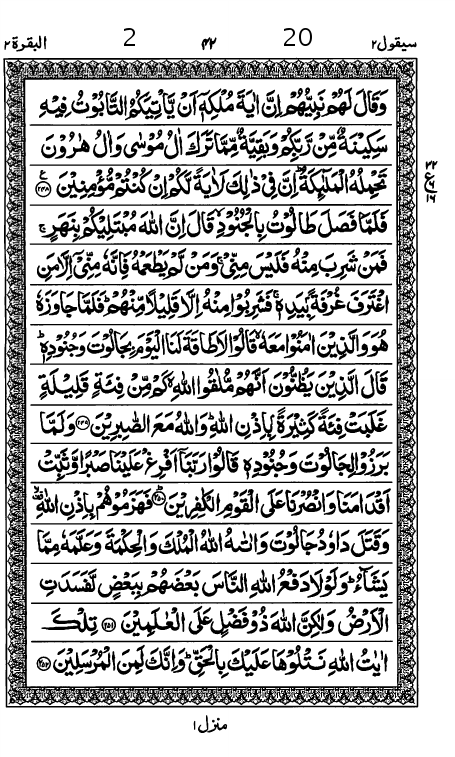 سيقول٢ 20 ٤٢ 2 البقرة٢
وَقَالَ لَهُمْ نَبِيُّهُمْ اِنَّ اٰيَةَ مُلْكِهٖۤ اَنْ يَّاْتِيَكُمُ التَّابُوْتُ فِيْهِ
سَكِيْنَةٌ مِّنْ رَّبِّكُمْ وَبَقِيَّةٌ مِّمَّا تَرَكَ اٰلُ مُوْسٰى وَاٰلُ هٰرُوْنَ
تَحْمِلُهُ الْمَلٰٓئِكَةُ ؕ اِنَّ فِيْ ذٰلِكَ لَاٰيَةً لَّكُمْ اِنْ كُنْتُمْ مُّؤْمِنِيْنَ ﴿٢٤٨﴾
فَلَمَّا فَصَلَ طَالُوْتُ بِالْجُنُوْدِ ۙ قَالَ اِنَّ اللّٰهَ مُبْتَلِيْكُمْ بِنَهَرٍ ۚ
فَمَنْ شَرِبَ مِنْهُ فَلَيْسَ مِنِّيْ ۚ وَمَنْ لَّمْ يَطْعَمْهُ فَاِنَّهٗ مِنِّيْۤ اِلَّا مَنِ
اغْتَرَفَ غُرْفَةًۢ بِيَدِهٖ ۚ فَشَرِبُوْا مِنْهُ اِلَّا قَلِيْلًا مِّنْهُمْ ؕ فَلَمَّا جَاوَزَهٗ
هُوَ وَالَّذِيْنَ اٰمَنُوْا مَعَهٗ ۙ قَالُوْا لَا طَاقَةَ لَنَا الْيَوْمَ بِجَالُوْتَ وَجُنُوْدِهٖ ؕ
قَالَ الَّذِيْنَ يَظُنُّوْنَ اَنَّهُمْ مُّلٰقُوا اللّٰهِ ۙ كَمْ مِّنْ فِئَةٍ قَلِيْلَةٍ
غَلَبَتْ فِئَةً كَثِيْرَةًۢ بِاِذْنِ اللّٰهِ ؕ وَاللّٰهُ مَعَ الصّٰبِرِيْنَ ﴿٢٤٩﴾ وَلَمَّا
بَرَزُوْا لِجَالُوْتَ وَجُنُوْدِهٖ قَالُوْا رَبَّنَاۤ اَفْرِغْ عَلَيْنَا صَبْرًا وَّثَبِّتْ
اَقْدَامَنَا وَانْصُرْنَا عَلَى الْقَوْمِ الْكٰفِرِيْنَ ﴿٢٥٠﴾ فَهَزَمُوْهُمْ بِاِذْنِ اللّٰهِ ۙ
وَقَتَلَ دَاوٗدُ جَالُوْتَ وَاٰتٰىهُ اللّٰهُ الْمُلْكَ وَالْحِكْمَةَ وَعَلَّمَهٗ مِمَّا
يَشَآءُ ؕ وَلَوْلَا دَفْعُ اللّٰهِ النَّاسَ بَعْضَهُمْ بِبَعْضٍ لَّفَسَدَتِ
الْاَرْضُ وَلٰكِنَّ اللّٰهَ ذُوْ فَضْلٍ عَلَى الْعٰلَمِيْنَ ﴿٢٥١﴾ تِلْكَ
اٰيٰتُ اللّٰهِ نَتْلُوْهَا عَلَيْكَ بِالْحَقِّ ؕ وَاِنَّكَ لَمِنَ الْمُرْسَلِيْنَ ﴿٢٥٢﴾
منزل١